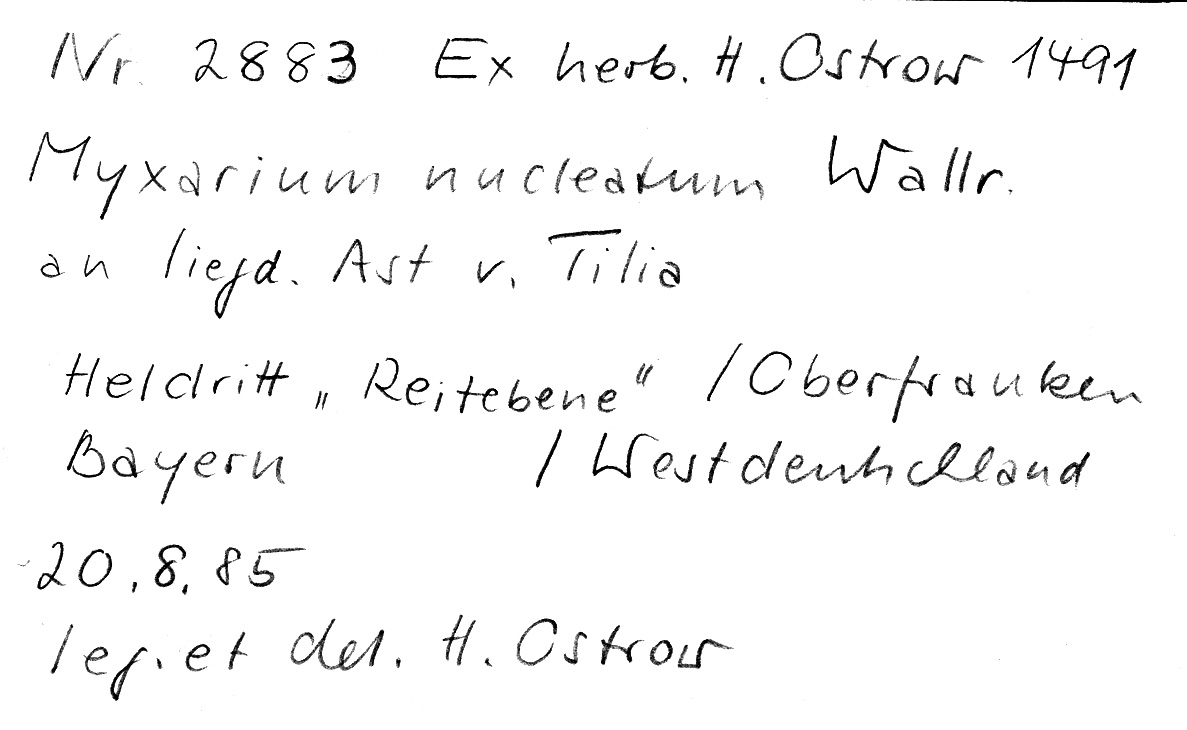 Nr. 2883 Ex herb. H. Ostrow 1491
Myxarium nucleatum Wallr.
an liegd. Ast v. Tilia
Heldritt „Reitebene“ / Oberfranken
Bayern / Westdeutschland
20.8.85
leg. et det. H. Ostrow